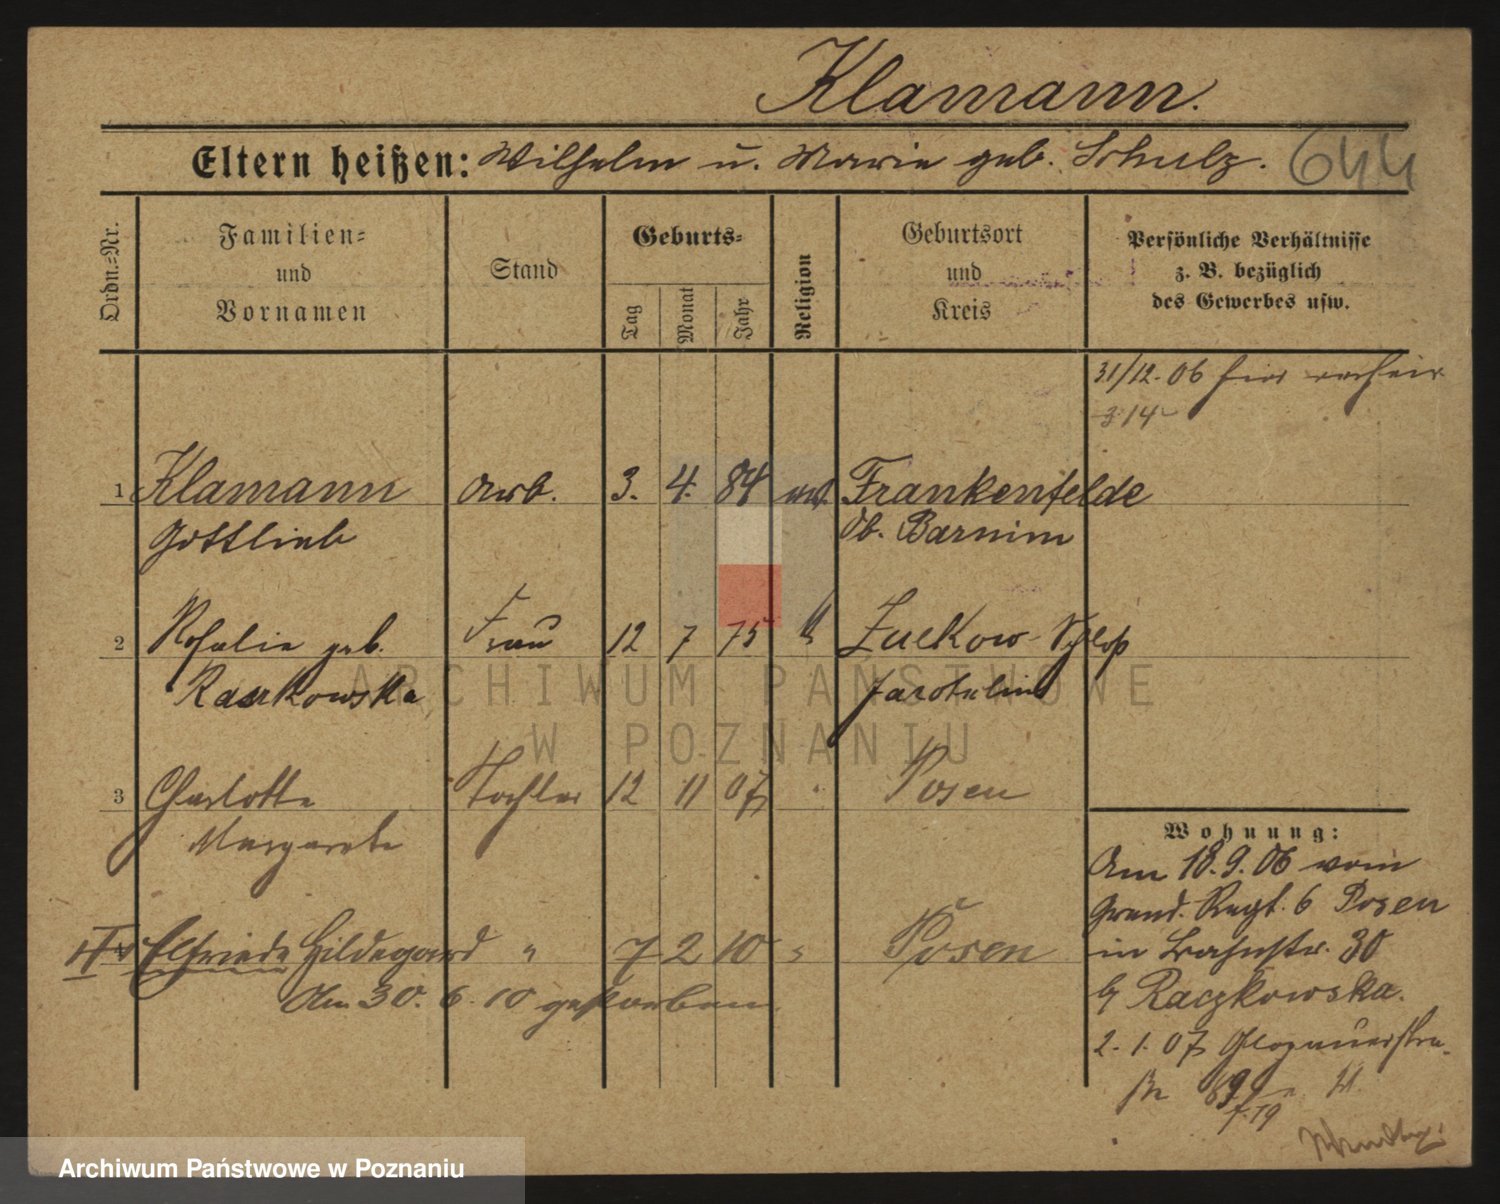 Klamann.
Eltern heißen: Wilhelm u. Marie geb. Schulz. 644
Ordn.-Nr.
Familien- und Vornamen
Stand
Geburts-
Tag Monat Jahr
Religion
Geburtsort und Kreis
Persönliche Verhältnisse
z. B. bezüglich
des Gewerbes usw.
31/12. 06 hier
3 14
1 Klamann Arb. 3. 4. 84 ev. Frankenfelde
Gottlieb Ob. Barnim
2 Rosalie geb. Frau 12 7 75 Zuckow Schloß
Raczkowska Jarotschin
3 Charlotte Tochter 12 11 07 Posen
Margarete
Elfriede Hildegard " 7 2 10 " Posen
Am 30. 6. 10 gestorben.
Wohnung:
Am 18. 9. 06 vom
Grend. Regt. 6 Posen
in Bahnstr. 30
b/ Raczkowska.
2. 1. 07 Glogauerstra-
ße 89
ARCHIWUM PAŃSTWOWE
W POZNANIU
Archiwum Państwowe w Poznaniu